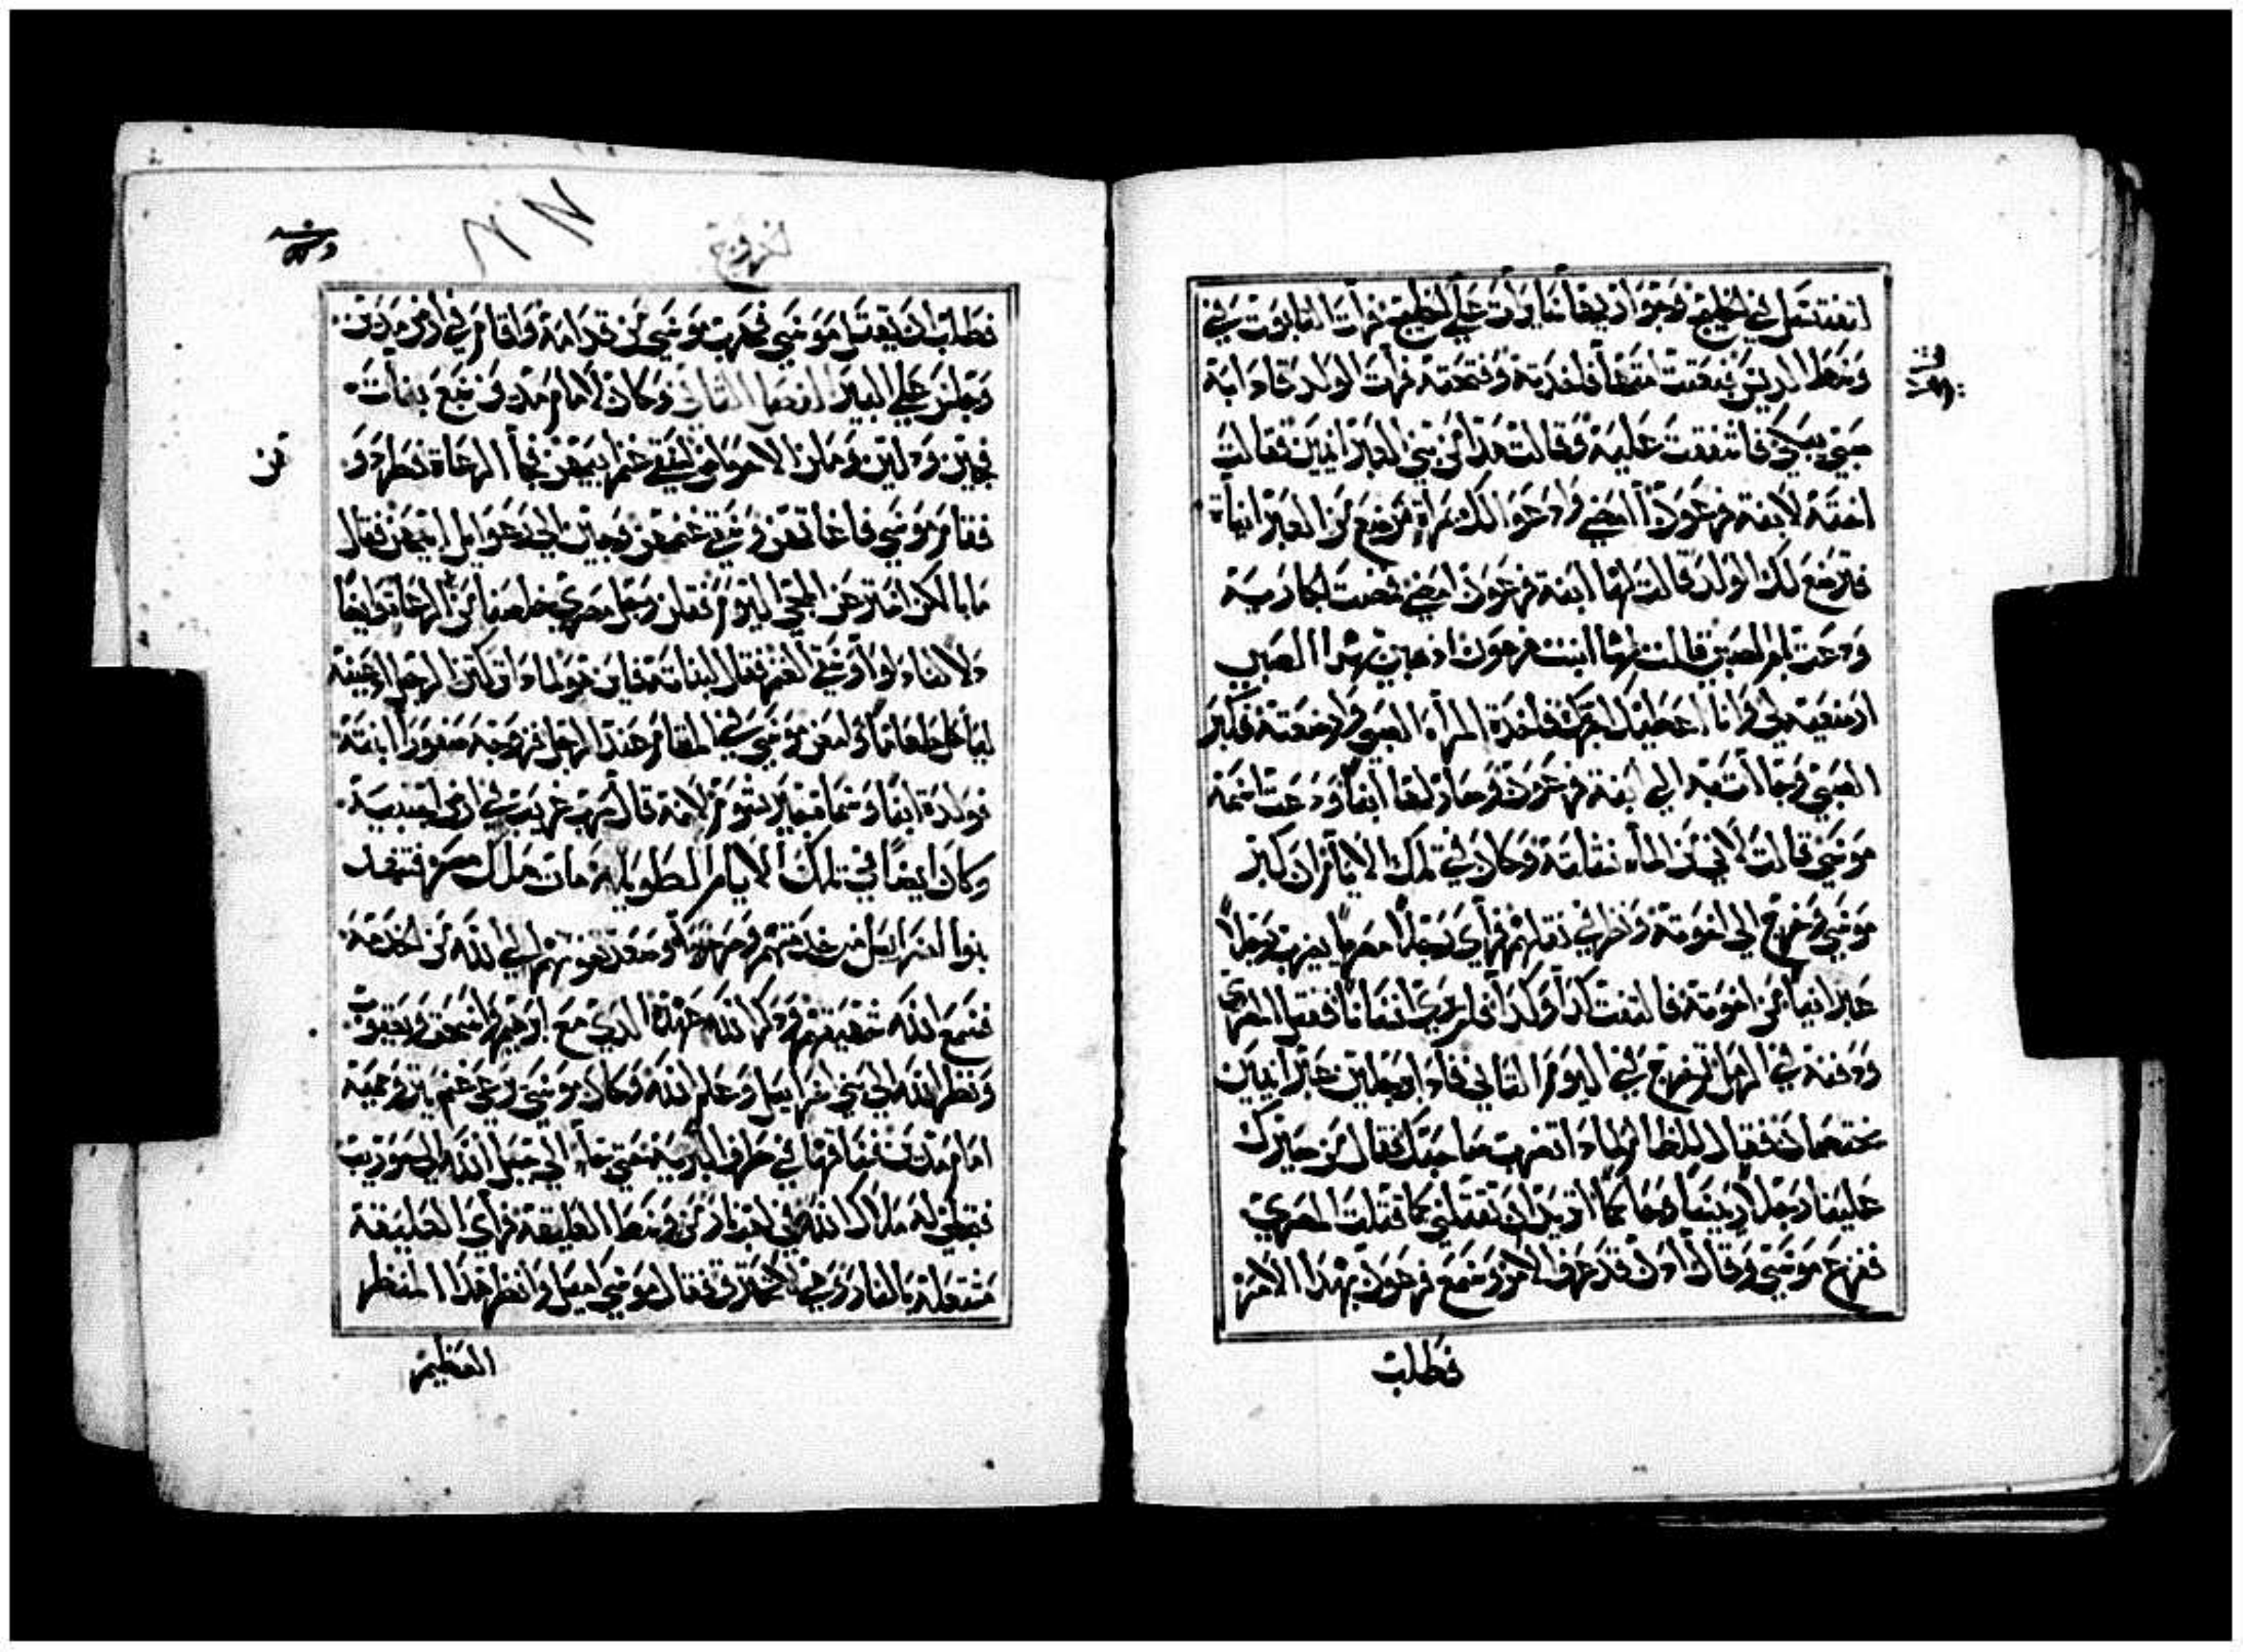 لتغتسل في الخليج وجواريها تتماوات علي الخليج فرات التابوت في
وسط الديس فبعتت امتها فاخدته وفتحته فرات الولد فاذا به
صبي يبكي فاشفقت عليه وقالت هذا من بني العبرانيين فقالت
اخته لابنة فرعون أامضي وادعوا لك امراة مرضع من العبرانيات
فترضع لك الولد قالت لها ابنة فرعون امضي فمضت الجارية
ودعت بام الصبي قالت لها ابنت فرعون اذهبي بهذا الصبي
ارضعيه لي وانا اعطيك اجرتك فاخدة المراة الصبي وارضعته فكبر
الصبي وجاات به الي ابنة فرعون وصار لها ابنا ودعت اسمه
موسي قالت لاني من الماء نشلته وكان في تلك الايام ان كبر
موسي وخرج الي اخوته ونظر الي ثقلهم فراي رجلا مصريا يضرب رجلا
عبرانيا من اخوته فالتفت كدا وكدا فلم يري انسانا فقتل المصري
ودفنه في الرمل ثم خرج في اليوم الثاني فاذا برجلين عبرانيين
يختصمان فقال للظالم لماذا تضرب صاحبك فقال من صيرك
علينا رجلا رييسا وحاكما اتريد ان تقتلني كما قتلت المصري
ففزع موسي وقال ادن قد عرف الامر وسمع فرعون بهذا الامر
فطلب
خروج
فطلب ان يقتل موسي فهرب موسي من قدامه واقام في ارض مدين
وجلس علي البير الفصل الثاني وكان لامام مدين سبع بنات
فجين ودلين وملان الاحواض ليسقي غنم ابيهن فجأ الرعاة فطردو
فقام موسي فاغاثهن وسقي غنمهن وجين الي رعوايل ابيهن فقال
ما بالكن اسرعتن المجي اليوم فقلن رجل مصري خلصنا من الرعاة وايضا
دلا لنا دلوا وسقي الغنم فقال لبناته فاين هو لماذا تركتن الرجل ادعينه
لياكل طعاما وامعن موسي في المقام عند الرجل فزوجه صفورا ابنته
فولدة ابنا وسماه جيرشوم لانه قال اني غريب في ارض اجنبية
وكان ايضا في تلك الايام الطويله مات ملك مصر فتنهد
بنوا اسراييل من خدمتهم وصرخوا وصعد صوتهم الي الله من الخدمة
فسمع الله تنهيدهم ودكر الله عهده الدي مع ابرهيم واسحق ويعقوب
ونظر الله الي بني اسراييل وعلم الله وكان موسي يرعي غنم يترو حميه
امام مدين فساقها في طرف البرية حتي جاء الي جبل الله الي حوريب
فتجلي له ملاك الله في لهب نار من وسط العليقة فراي العليقة
مشتعلة بالنار وهي لا تحترق فقال موسي اميل وانظر هذا المنظر
العظيم